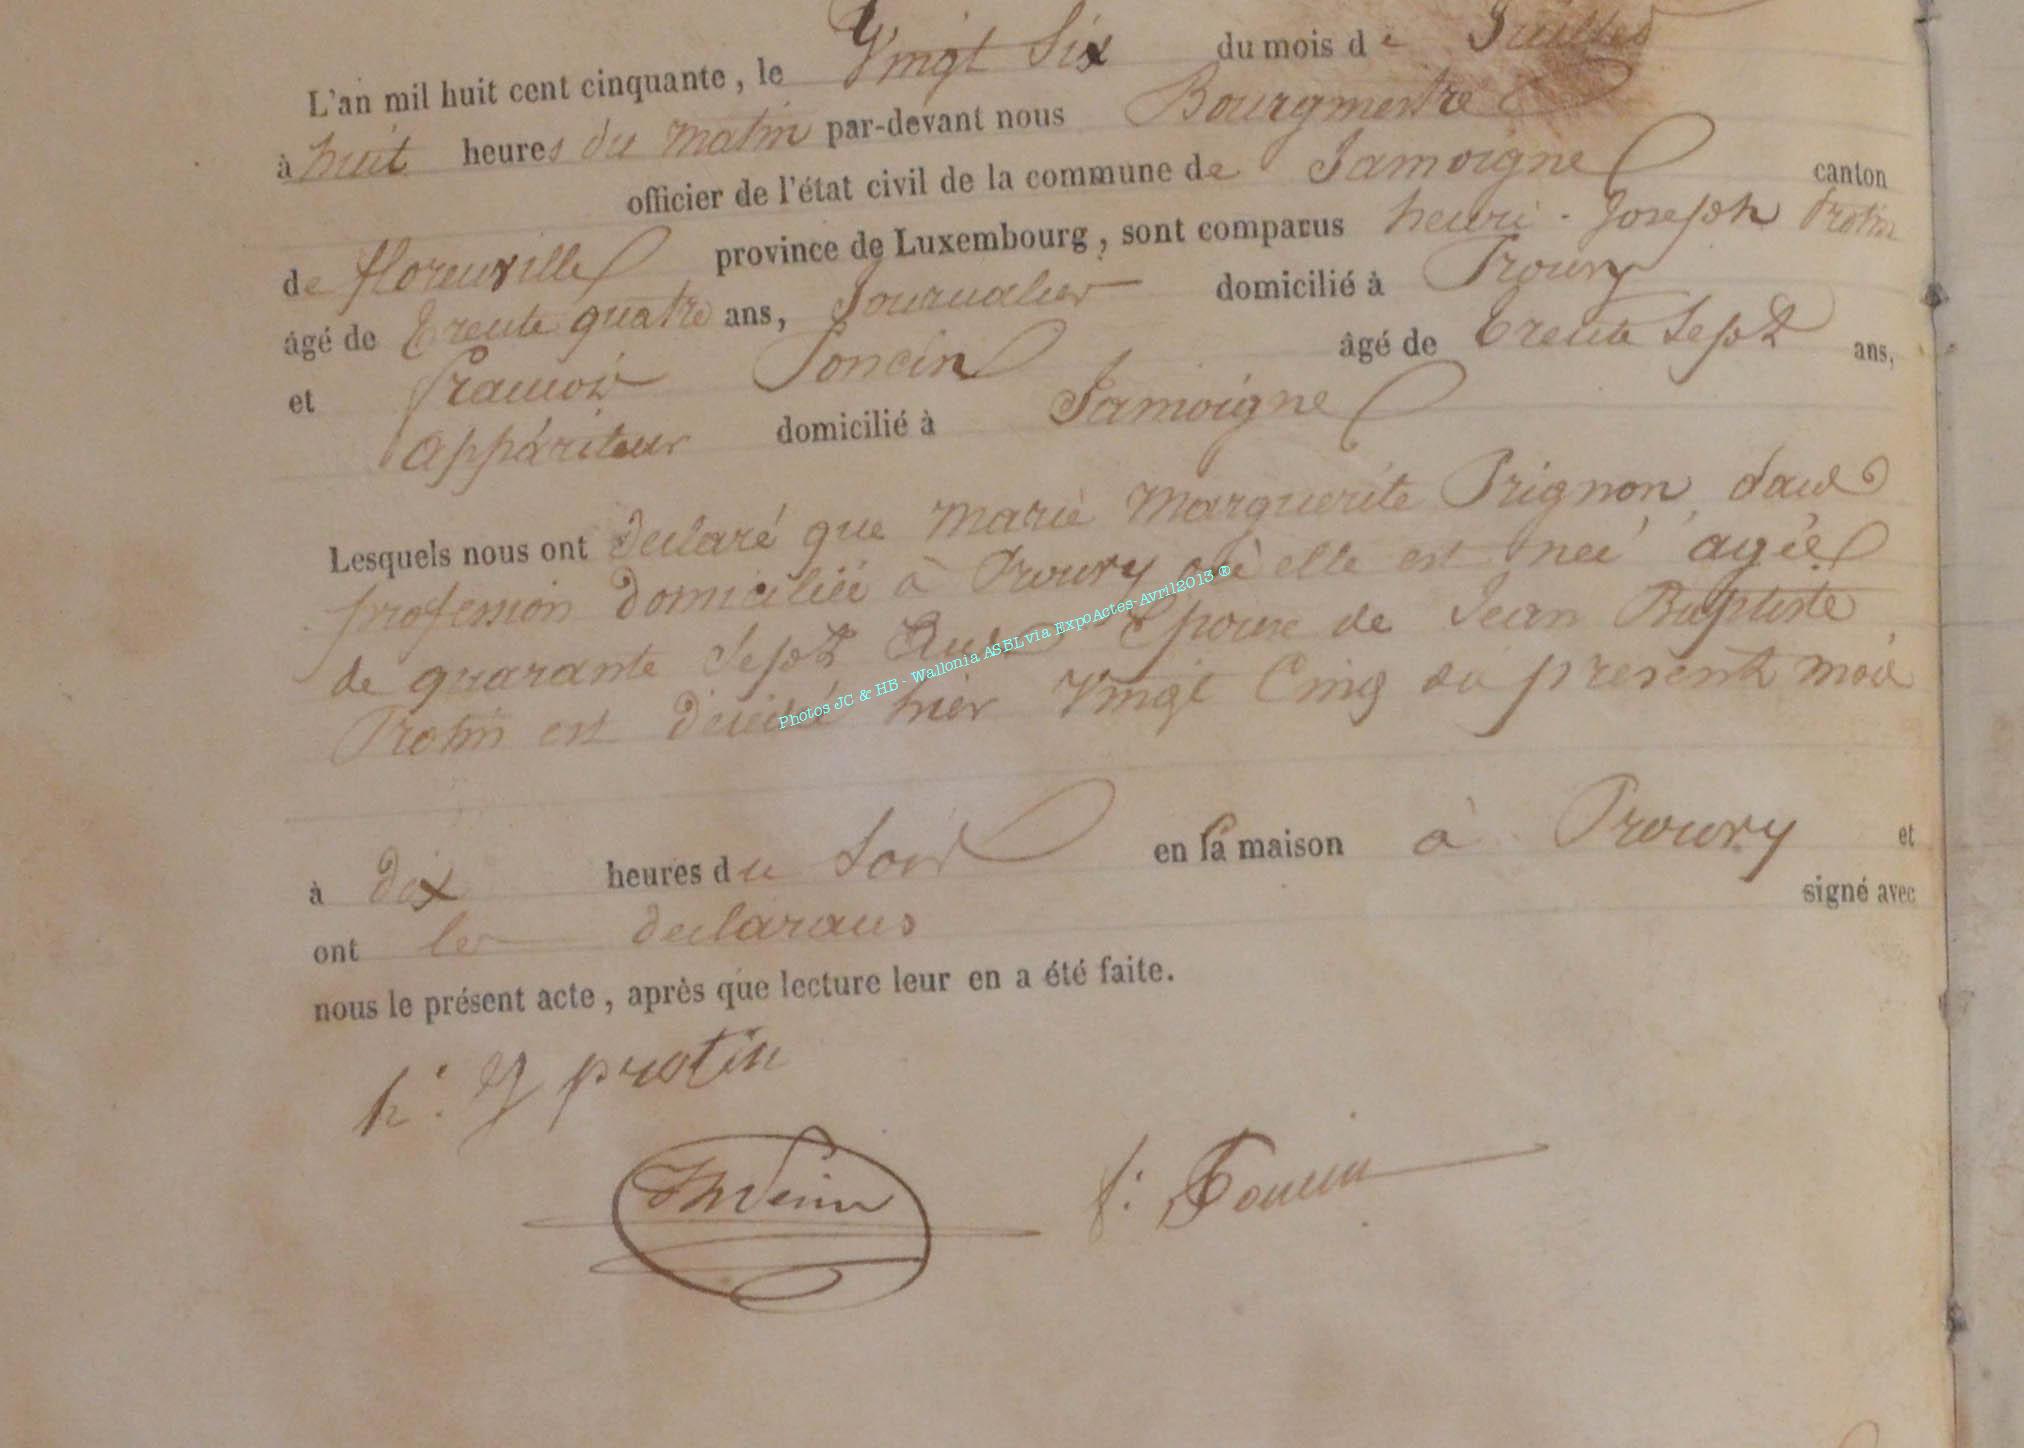 L'an mil huit cent cinquante, le Vingt Six du mois de Juillet
à huit heures du matin par-devant nous Bourgmestre
officier de l'état civil de la commune de Jamoigne canton
de florenville province de Luxembourg, sont comparus henri-Joseph Protin
âgé de Trente quatre ans, Journalier domicilié à Prouvy
et François Poncin âgé de trente Sept ans,
appariteur domicilié à Jamoigne
Lesquels nous ont declaré que marie marguerite Prignon, sans
profession domiciliée à Prouvy où elle est née agée
de quarante Sept Epouse de Jean Baptiste
Protin est décédé hier Vingt Cinq du present mois
à dix heures du Soir en sa maison à Prouvy et
ont les declarans signé avec
nous le présent acte, après que lecture leur en a été faite.
h. J protin
f: Poncin
Photos JC & HB - Wallonia ASBL via ExpoActes-Avril2013 ®